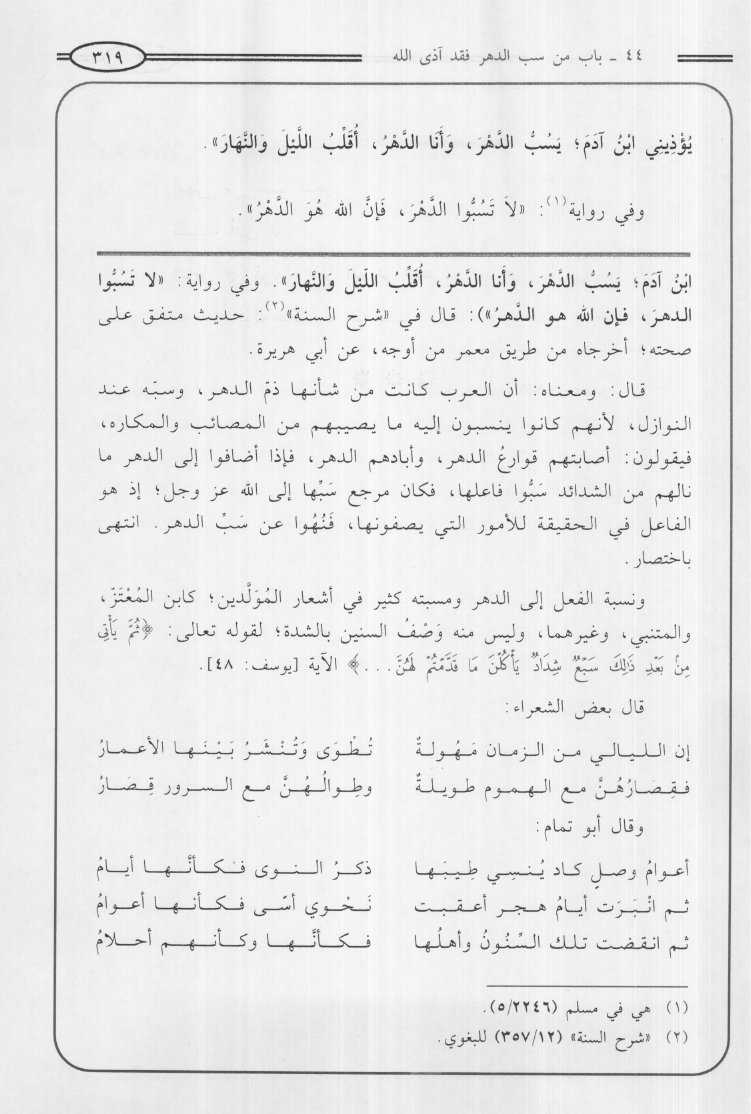 ٤٤ ـ باب من سب الدهر فقد آذى الله
٣١٩
يُؤْذِينِي ابْنُ آدَمَ؛ يَسُبُّ الدَّهْرَ، وَأَنَا الدَّهْرُ، أُقَلِّبُ اللَّيْلَ وَالنَّهَارَ».
وفي رواية(١): «لاَ تَسُبُّوا الدَّهْرَ، فَإِنَّ الله هُوَ الدَّهْرُ».
ابْنُ آدَمَ؛ يَسُبُّ الدَّهْرَ، وَأَنا الدَّهْرُ، أُقَلِّبُ اللّيْلَ وَالنَّهارَ». وفي رواية: «لا تَسُبُّوا
الدهرَ، فإن الله هو الدَّهرُ»): قال في «شرح السنة»(٢): حديث متفق على
صحته؛ أخرجاه من طريق معمر من أوجه، عن أبي هريرة.
قال: ومعناه: أن العرب كانت من شأنها ذمّ الدهر، وسبّه عند
النوازل، لأنهم كانوا ينسبون إليه ما يصيبهم من المصائب والمكاره،
فيقولون: أصابتهم قوارعُ الدهر، وأبادهم الدهر، فإذا أضافوا إلى الدهر ما
نالهم من الشدائد سَبُّوا فاعلها، فكان مرجع سَبِّها إلى الله عز وجل؛ إذ هو
الفاعل في الحقيقة للأمور التي يصفونها، فَنُهُوا عن سَبِّ الدهر. انتهى
باختصار.
ونسبة الفعل إلى الدهر ومسبته كثير في أشعار المُوَلَّدين؛ كابن المُعْتَزّ،
والمتنبي، وغيرهما، وليس منه وَصْفُ السنين بالشدة؛ لقوله تعالى: ﴿ثُمَّ يَأْتِي
مِنْ بَعْدِ ذَلِكَ سَبْعٌ شِدَادٌ يَأْكُلْنَ مَا قَدَّمْتُمْ لَهُنَّ...﴾ الآية [يوسف: ٤٨].
قال بعض الشعراء:
إن الليالي من الزمان مَهُولةٌ تُطْوَى وَتُنْشَرُ بَيْنَها الأعمارُ
فقِصَارُهُنَّ مع الهموم طويلةٌ وطِوالُهُنَّ مع السرور قِصَارُ
وقال أبو تمام:
أعوامُ وصلٍ كاد يُنسِي طِيبَها ذكرُ النوى فكأنَّها أيامُ
ثم انْبَرَت أيامُ هجر أعقبت نَحْوي أسًى فكأنها أعوامُ
ثم انقضت تلك السِّنُونُ وأهلُها فكأنَّها وكأنهم أحلامُ
(١) هي في مسلم (٥/٢٢٤٦).
(٢) «شرح السنة» (٣٥٧/١٢) للبغوي.